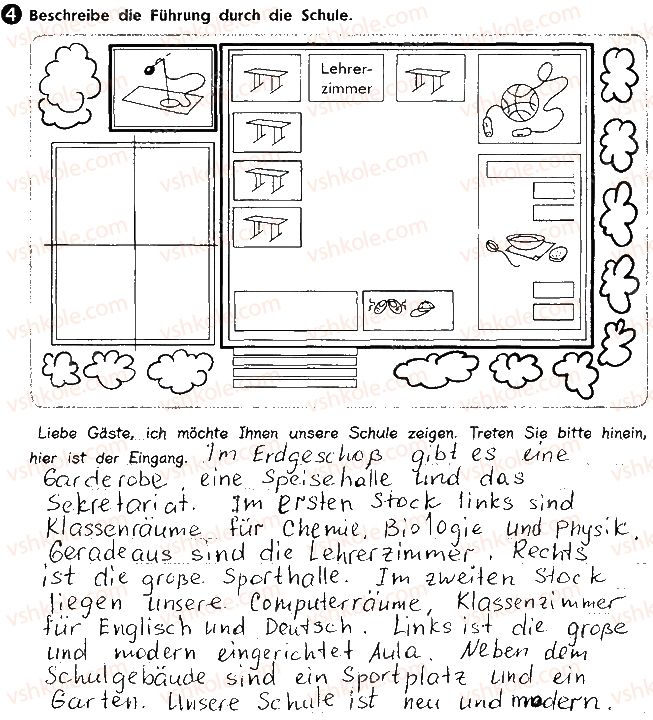 4 Beschreibe die Führung durch die Schule.
Lehrer-
zimmer
Liebe Gäste, ich möchte Ihnen unsere Schule zeigen. Treten Sie bitte hinein,
hier ist der Eingang. Im Erdgeschoß gibt es eine
Garderobe, eine Speisehalle und das
Sekretariat. Im ersten Stock links sind
Klassenräume für Chemie, Biologie und Physik.
Geradeaus sind die Lehrerzimmer. Rechts
ist die große Sporthalle. Im zweiten Stock
liegen unsere Computerräume, Klassenzimmer
für Englisch und Deutsch. Links ist die große
und modern eingerichtet Aula. Neben dem
Schulgebäude sind ein Sportplatz und ein
Garten. Unsere Schule ist neu und modern.